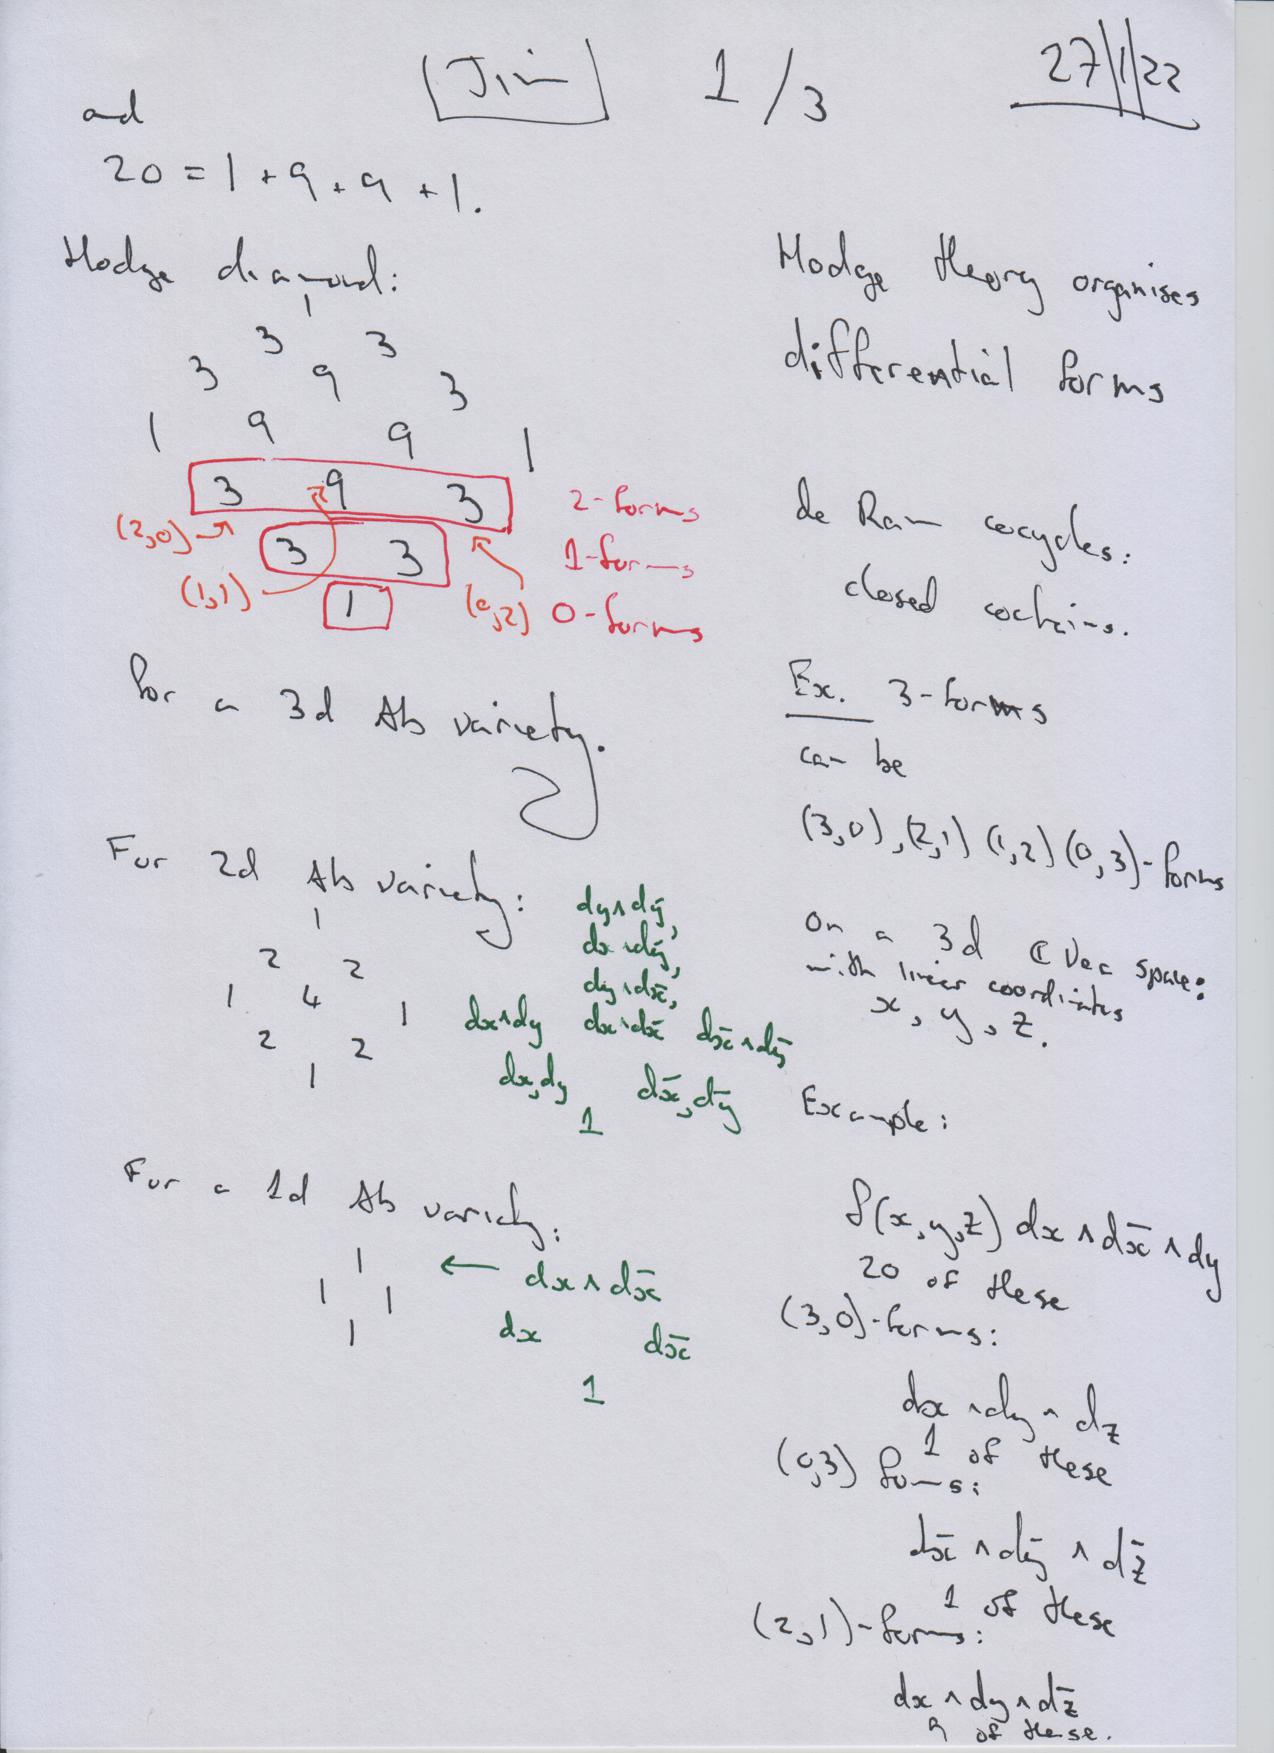 [Jim] 1/3 27/1/22
and
20 = 1 + 9 + 9 + 1.
Hodge diamond:
1
3 3
3 9 3
1 9 9 1
3 9 3 2-forms
(2,0)
3 3 1-forms
(1,1)
1 (0,2) 0-forms
for a 3d Ab variety.
For 2d Ab variety:
1
2 2
1 4 1
2 2
1
dy∧dȳ,
dx∧dȳ,
dy∧dx̄,
dx∧dy dx∧dx̄ dx̄∧dȳ
dx,dy dx̄,dȳ
1
For a 1d Ab variety:
1
1 1
1
← dx∧dx̄
dx dx̄
1
Hodge theory organises
differential forms
de Ram cocycles:
closed cochains.
Ex. 3-forms
can be
(3,0),(2,1) (1,2) (0,3)-forms
on a 3d ℂ Vec space:
with linear coordinates
x, y, z.
Example:
f(x,y,z) dx∧dx̄∧dy
20 of these
(3,0)-forms:
dx∧dy∧dz
1 of these
(0,3) forms:
dx̄∧dȳ∧dz̄
1 of these
(2,1)-forms:
dx∧dy∧dz̄
9 of these.